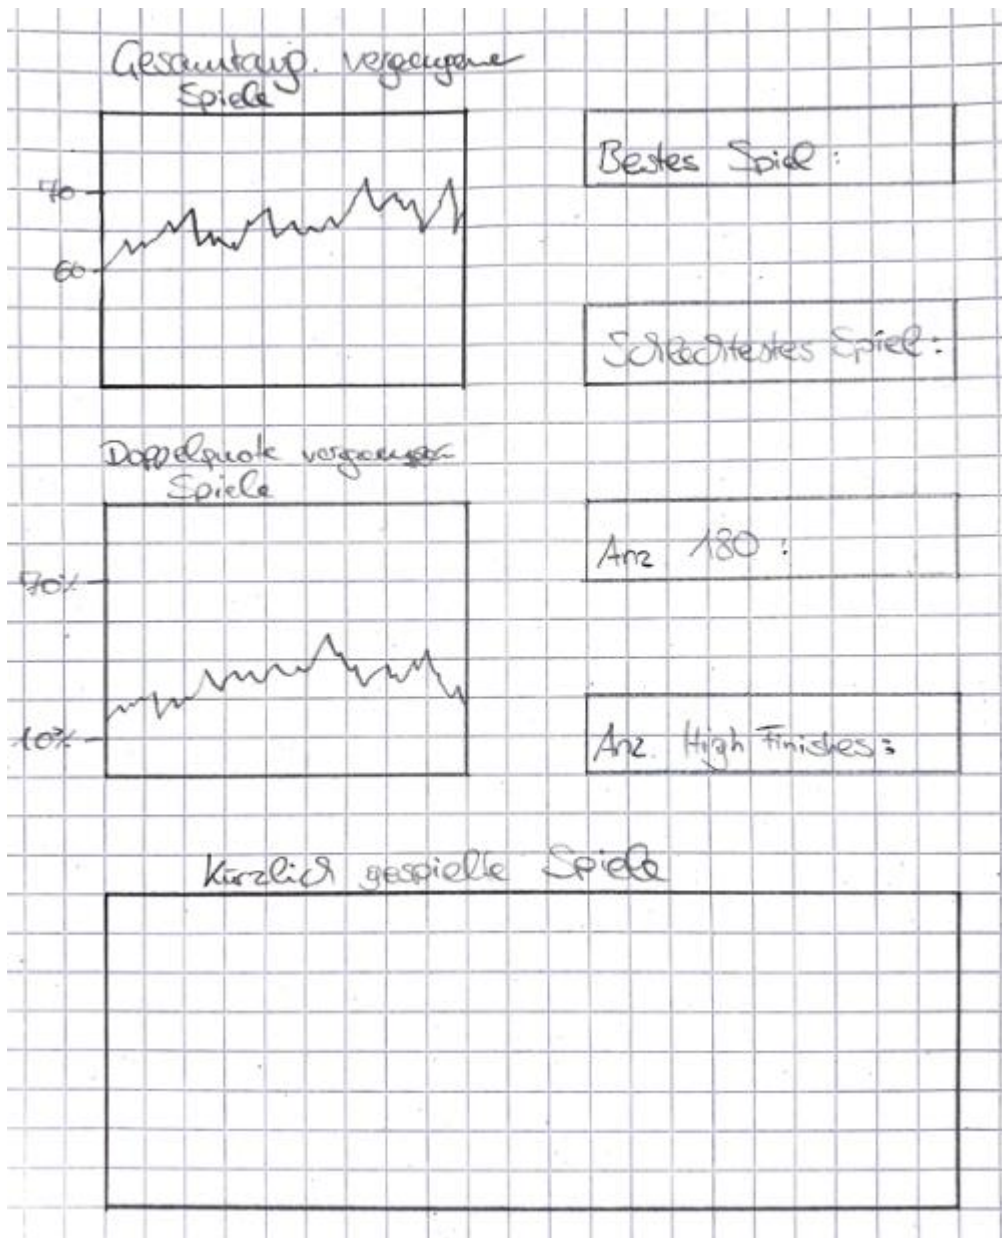 Gesamtavg. vergangene
Spiele
70
60
Bestes Spiel:
Schlechtestes Spiel:
Doppelquote vergangener
Spiele
70%
10%
Anz 180:
Anz. High Finishes:
Kürzlich gespielte Spiele